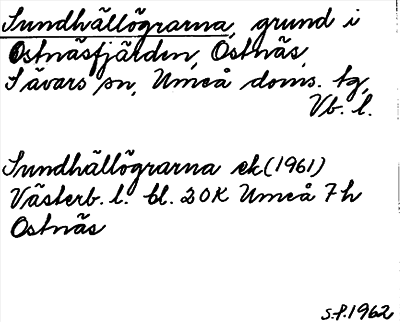 Sundhällögrarna, grund i
Ostnäsfjärden, Ostnäs,
Sävars sn, Umeå doms. tg,
Vb. l.
Sundhällögrarna ek (1961)
Västerb. l. bl. 20K Umeå 7h
Ostnäs
S.P. 1962